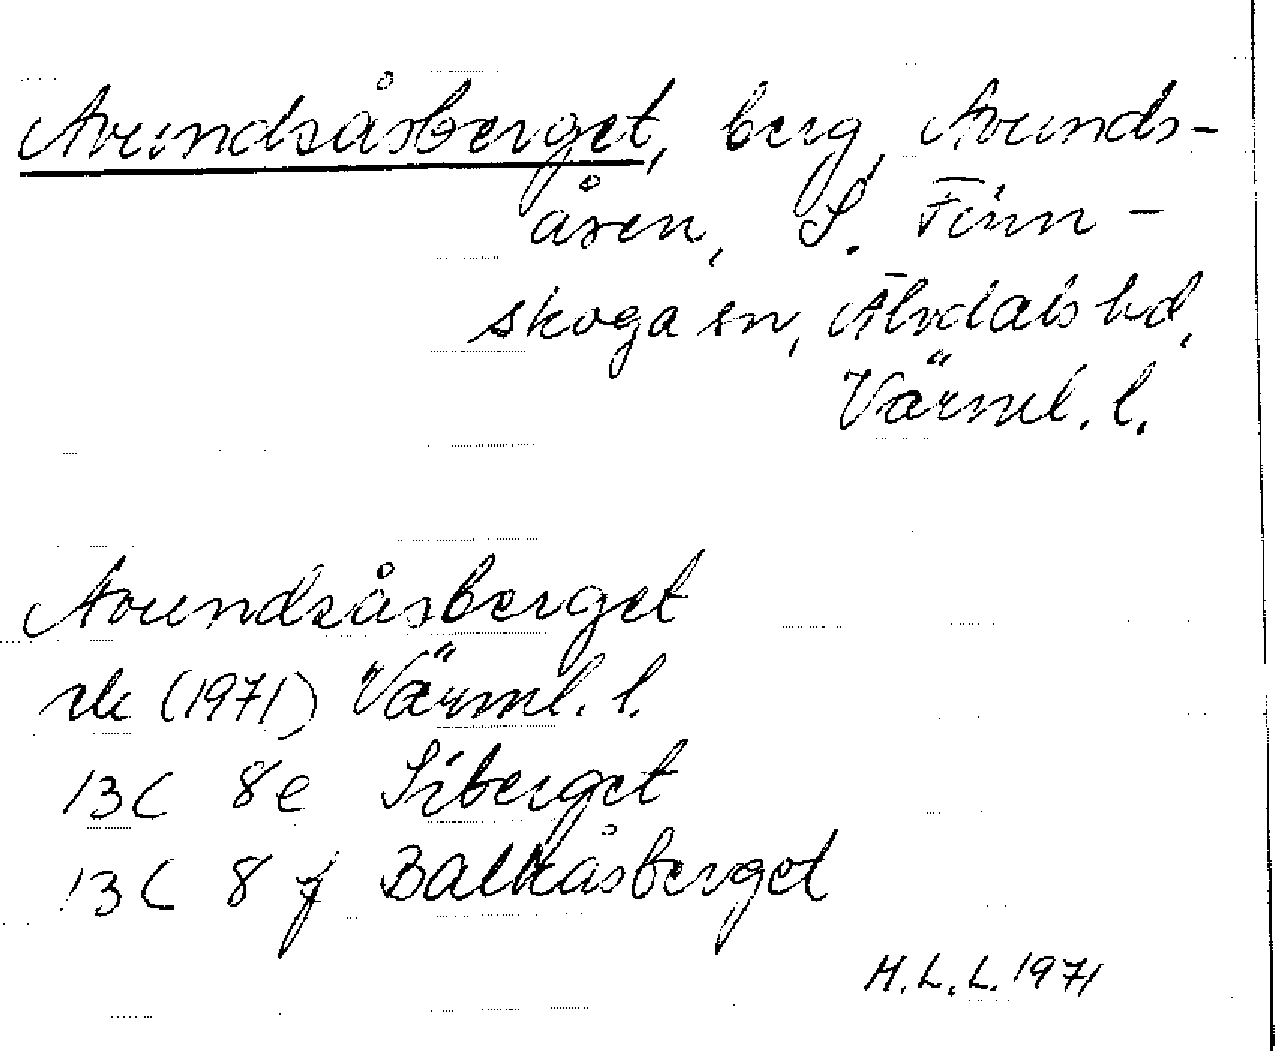 Avundsåsberget, berg, Avunds-
åsen, S. Finn-
skoga sn, Älvdals hd,
Värml. l.
Avundsåsberget
rk (1971) Värml. l.
13C 8e Siberget
13C 8f Balkåsberget
H.L.L. 1971